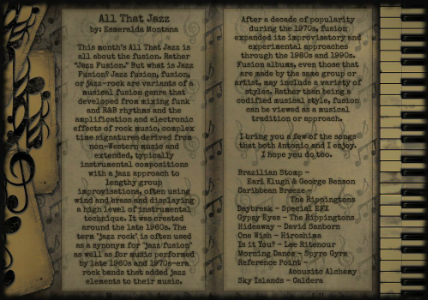 All That Jazz
by: Esmeralda Montana
This month's All That Jazz is
all about the fusion. Rather
"Jazz Fusion." But what is Jazz
Fusion? Jazz fusion, fusion,
or jazz-rock are variants of a
musical fusion genre that
developed from mixing funk
and R&B rhythms and the
amplification and electronic
effects of rock music, complex
time signatures derived from
non-Western music and
extended, typically
instrumental compositions
with a jazz approach to
lengthy group
improvisations, often using
wind and brass and displaying
a high level of instrumental
technique. It was created
around the late 1960s. The
term "jazz rock" is often used
as a synonym for "jazz fusion"
as well as for music performed
by late 1960s and 1970s-era
rock bands that added jazz
elements to their music.
After a decade of popularity
during the 1970s, fusion
expanded its improvisatory and
experimental approaches
through the 1980s and 1990s.
Fusion albums, even those that
are made by the same group or
artist, may include a variety of
styles. Rather than being a
codified musical style, fusion
can be viewed as a musical
tradition or approach.
I bring you a few of the songs
that both Antonio and I enjoy.
I hope you do too.
Brazilian Stomp -
Earl Klugh & George Benson
Caribbean Breeze -
The Rippingtons
Daybreak - Special EFX
Gypsy Eyes - The Rippingtons
Hideaway - David Sanborn
One Wish - Hiroshima
Is it You? - Lee Ritenour
Morning Dance - Spyro Gyra
Reference Point -
Acoustic Alchemy
Sky Islands - Caldera